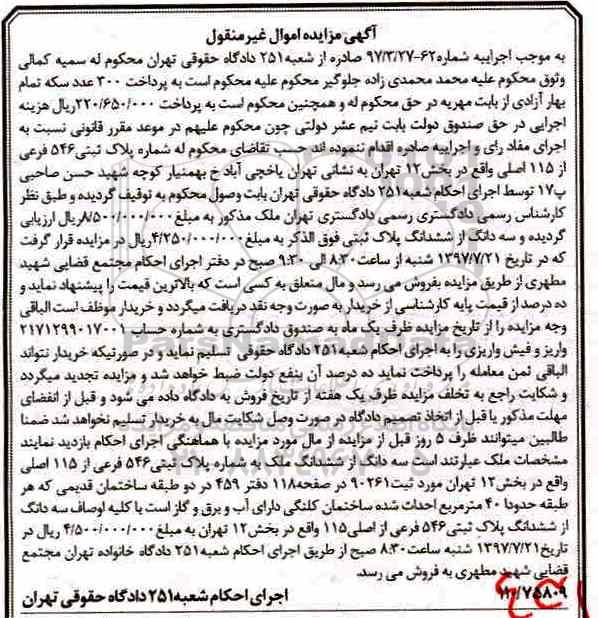 آگهی مزایده اموال غیر منقول
به موجب اجراییه شماره ۶۲-۹۷/۳/۲۷ صادره از شعبه ۲۵۱ دادگاه حقوقی تهران محکوم له سمیه کمالی
وثوق محکوم علیه محمد محمدی زاده جلوگیر محکوم علیه محکوم است به پرداخت ۳۰۰ عدد سکه تمام
بهار آزادی از بابت مهریه در حق محکوم له و همچنین محکوم است به پرداخت ۲۲۰/۶۵۰/۰۰۰ریال هزینه
اجرایی در حق صندوق دولت بابت نیم عشر دولتی چون محکوم علیهم در موعد مقرر قانونی نسبت به
اجرای مفاد رای و اجراییه صادره اقدام ننموده اند حسب تقاضای محکوم له شماره پلاک ثبتی ۵۴۶ فرعی
از ۱۱۵ اصلی واقع در بخش ۱۲ تهران به نشانی تهران یاخچی آباد خ بهمنیار کوچه شهید حسن صاحبی
پ ۱۷ توسط اجرای احکام شعبه ۲۵۱ دادگاه حقوقی تهران بابت وصول محکوم به توقیف گردیده و طبق نظر
کارشناس رسمی دادگستری رسمی دادگستری تهران ملک مذکور به مبلغ ۸/۵۰۰/۰۰۰/۰۰۰ریال ارزیابی
گردیده و سه دانگ از ششدانگ پلاک ثبتی فوق الذکر به مبلغ ۴/۲۵۰/۰۰۰/۰۰۰ریال در مزایده قرار گرفت
که در تاریخ ۱۳۹۷/۷/۲۱ شنبه از ساعت ۸:۳۰ الی ۹:۳۰ صبح در دفتر اجرای احکام مجتمع قضایی شهید
مطهری از طریق مزایده بفروش می رسد و مال متعلق به کسی است که بالاترین قیمت را پیشنهاد نماید و
ده درصد از قیمت پایه کارشناسی از خریدار به صورت وجه نقد دریافت میگردد و خریدار موظف است الباقی
وجه مزایده را از تاریخ مزایده ظرف یک ماه به صندوق دادگستری به شماره حساب ۲۱۷۱۲۹۹۰۱۷۰۰۱
واریز و فیش واریزی را به اجرای احکام شعبه ۲۵۱ دادگاه حقوقی تسلیم نماید و در صورتیکه خریدار نتواند
الباقی ثمن معامله را پرداخت نماید ده درصد آن بنفع دولت ضبط خواهد شد و مزایده تجدید میگردد
و شکایت راجع به تخلف مزایده ظرف یک هفته از تاریخ فروش به دادگاه داده می شود و قبل از انقضای
مهلت مذکور یا قبل از اتخاذ تصمیم دادگاه در صورت وصل شکایت مال به خریدار تسلیم نخواهد شد ضمنا
طالبین میتوانند ظرف ۵ روز قبل از مزایده از مال مورد مزایده با هماهنگی اجرای احکام بازدید نمایند
مشخصات ملک عبارتند است سه دانگ از ششدانگ ملک به شماره پلاک ثبتی ۵۴۶ فرعی از ۱۱۵ اصلی
واقع در بخش ۱۲ تهران مورد ثبت ۹۰۲۶۱ در صفحه ۱۱۸ دفتر ۴۵۹ در دو طبقه ساختمان قدیمی که هر
طبقه حدودا ۴۰ مترمربع احداث شده ساختمان کلنگی دارای آب و برق و گاز است با کلیه اوصاف سه دانگ
از ششدانگ پلاک ثبتی ۵۴۶ فرعی از اصلی ۱۱۵ واقع در بخش ۱۲ تهران به مبلغ ۴/۵۰۰/۰۰۰/۰۰۰ ریال در
تاریخ ۱۳۹۷/۷/۲۱ شنبه ساعت ۸:۳۰ صبح از طریق اجرای احکام شعبه ۲۵۱ دادگاه خانواده تهران مجتمع
قضایی شهید مطهری به فروش می رسد.
اجرای احکام شعبه ۲۵۱ دادگاه حقوقی تهران
ParsNamadData